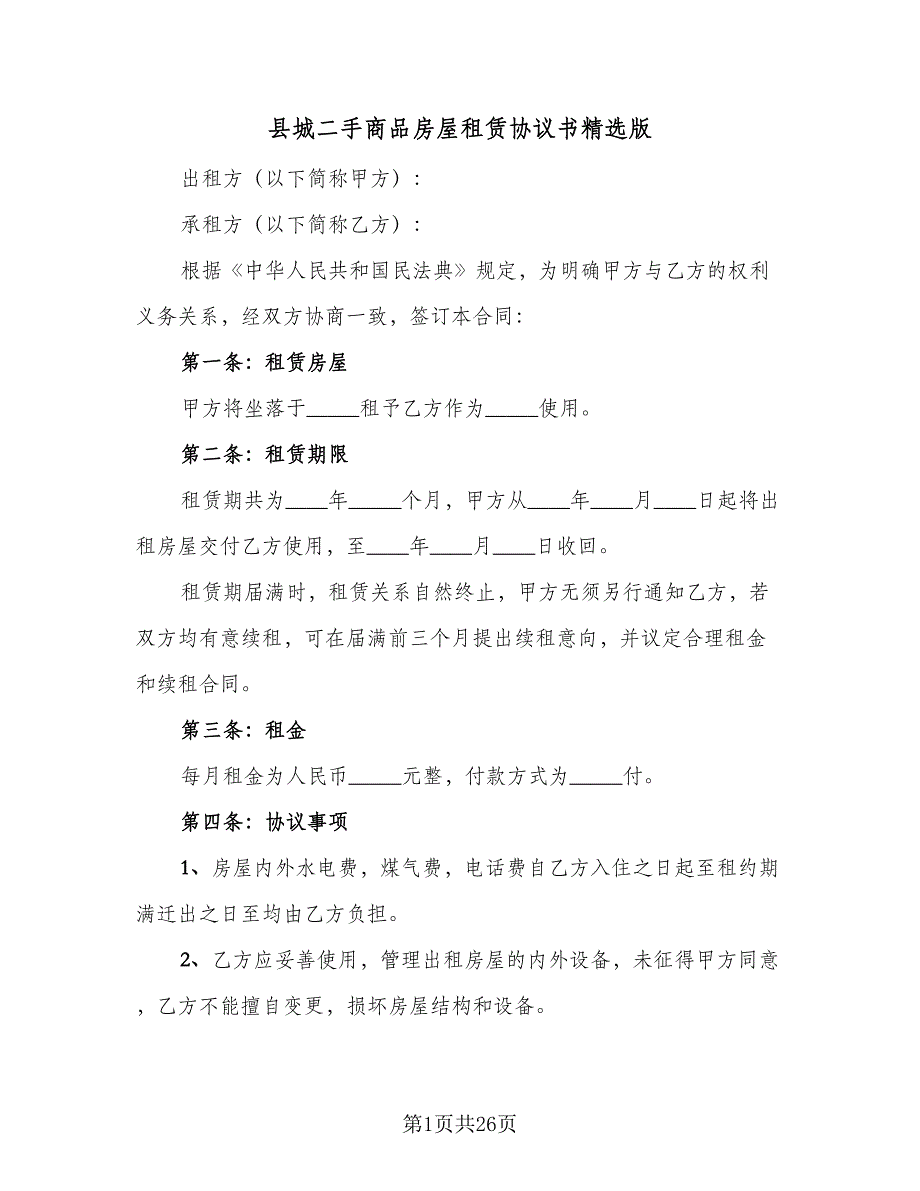 县城二手商品房屋租赁协议书精选版
出租方（以下简称甲方）：
承租方（以下简称乙方）：
根据《中华人民共和国民法典》规定，为明确甲方与乙方的权利
义务关系，经双方协商一致，签订本合同：
第一条：租赁房屋
甲方将坐落于_____租予乙方作为_____使用。
第二条：租赁期限
租赁期共为____年_____个月，甲方从____年____月____日起将出
租房屋交付乙方使用，至____年____月____日收回。
租赁期届满时，租赁关系自然终止，甲方无须另行通知乙方，若
双方均有意续租，可在届满前三个月提出续租意向，并议定合理租金
和续租合同。
第三条：租金
每月租金为人民币_____元整，付款方式为_____付。
第四条：协议事项
1、房屋内外水电费，煤气费，电话费自乙方入住之日起至租约期
满迁出之日至均由乙方负担。
2、乙方应妥善使用，管理出租房屋的内外设备，未征得甲方同意
，乙方不能擅自变更，损坏房屋结构和设备。
第1页共26页